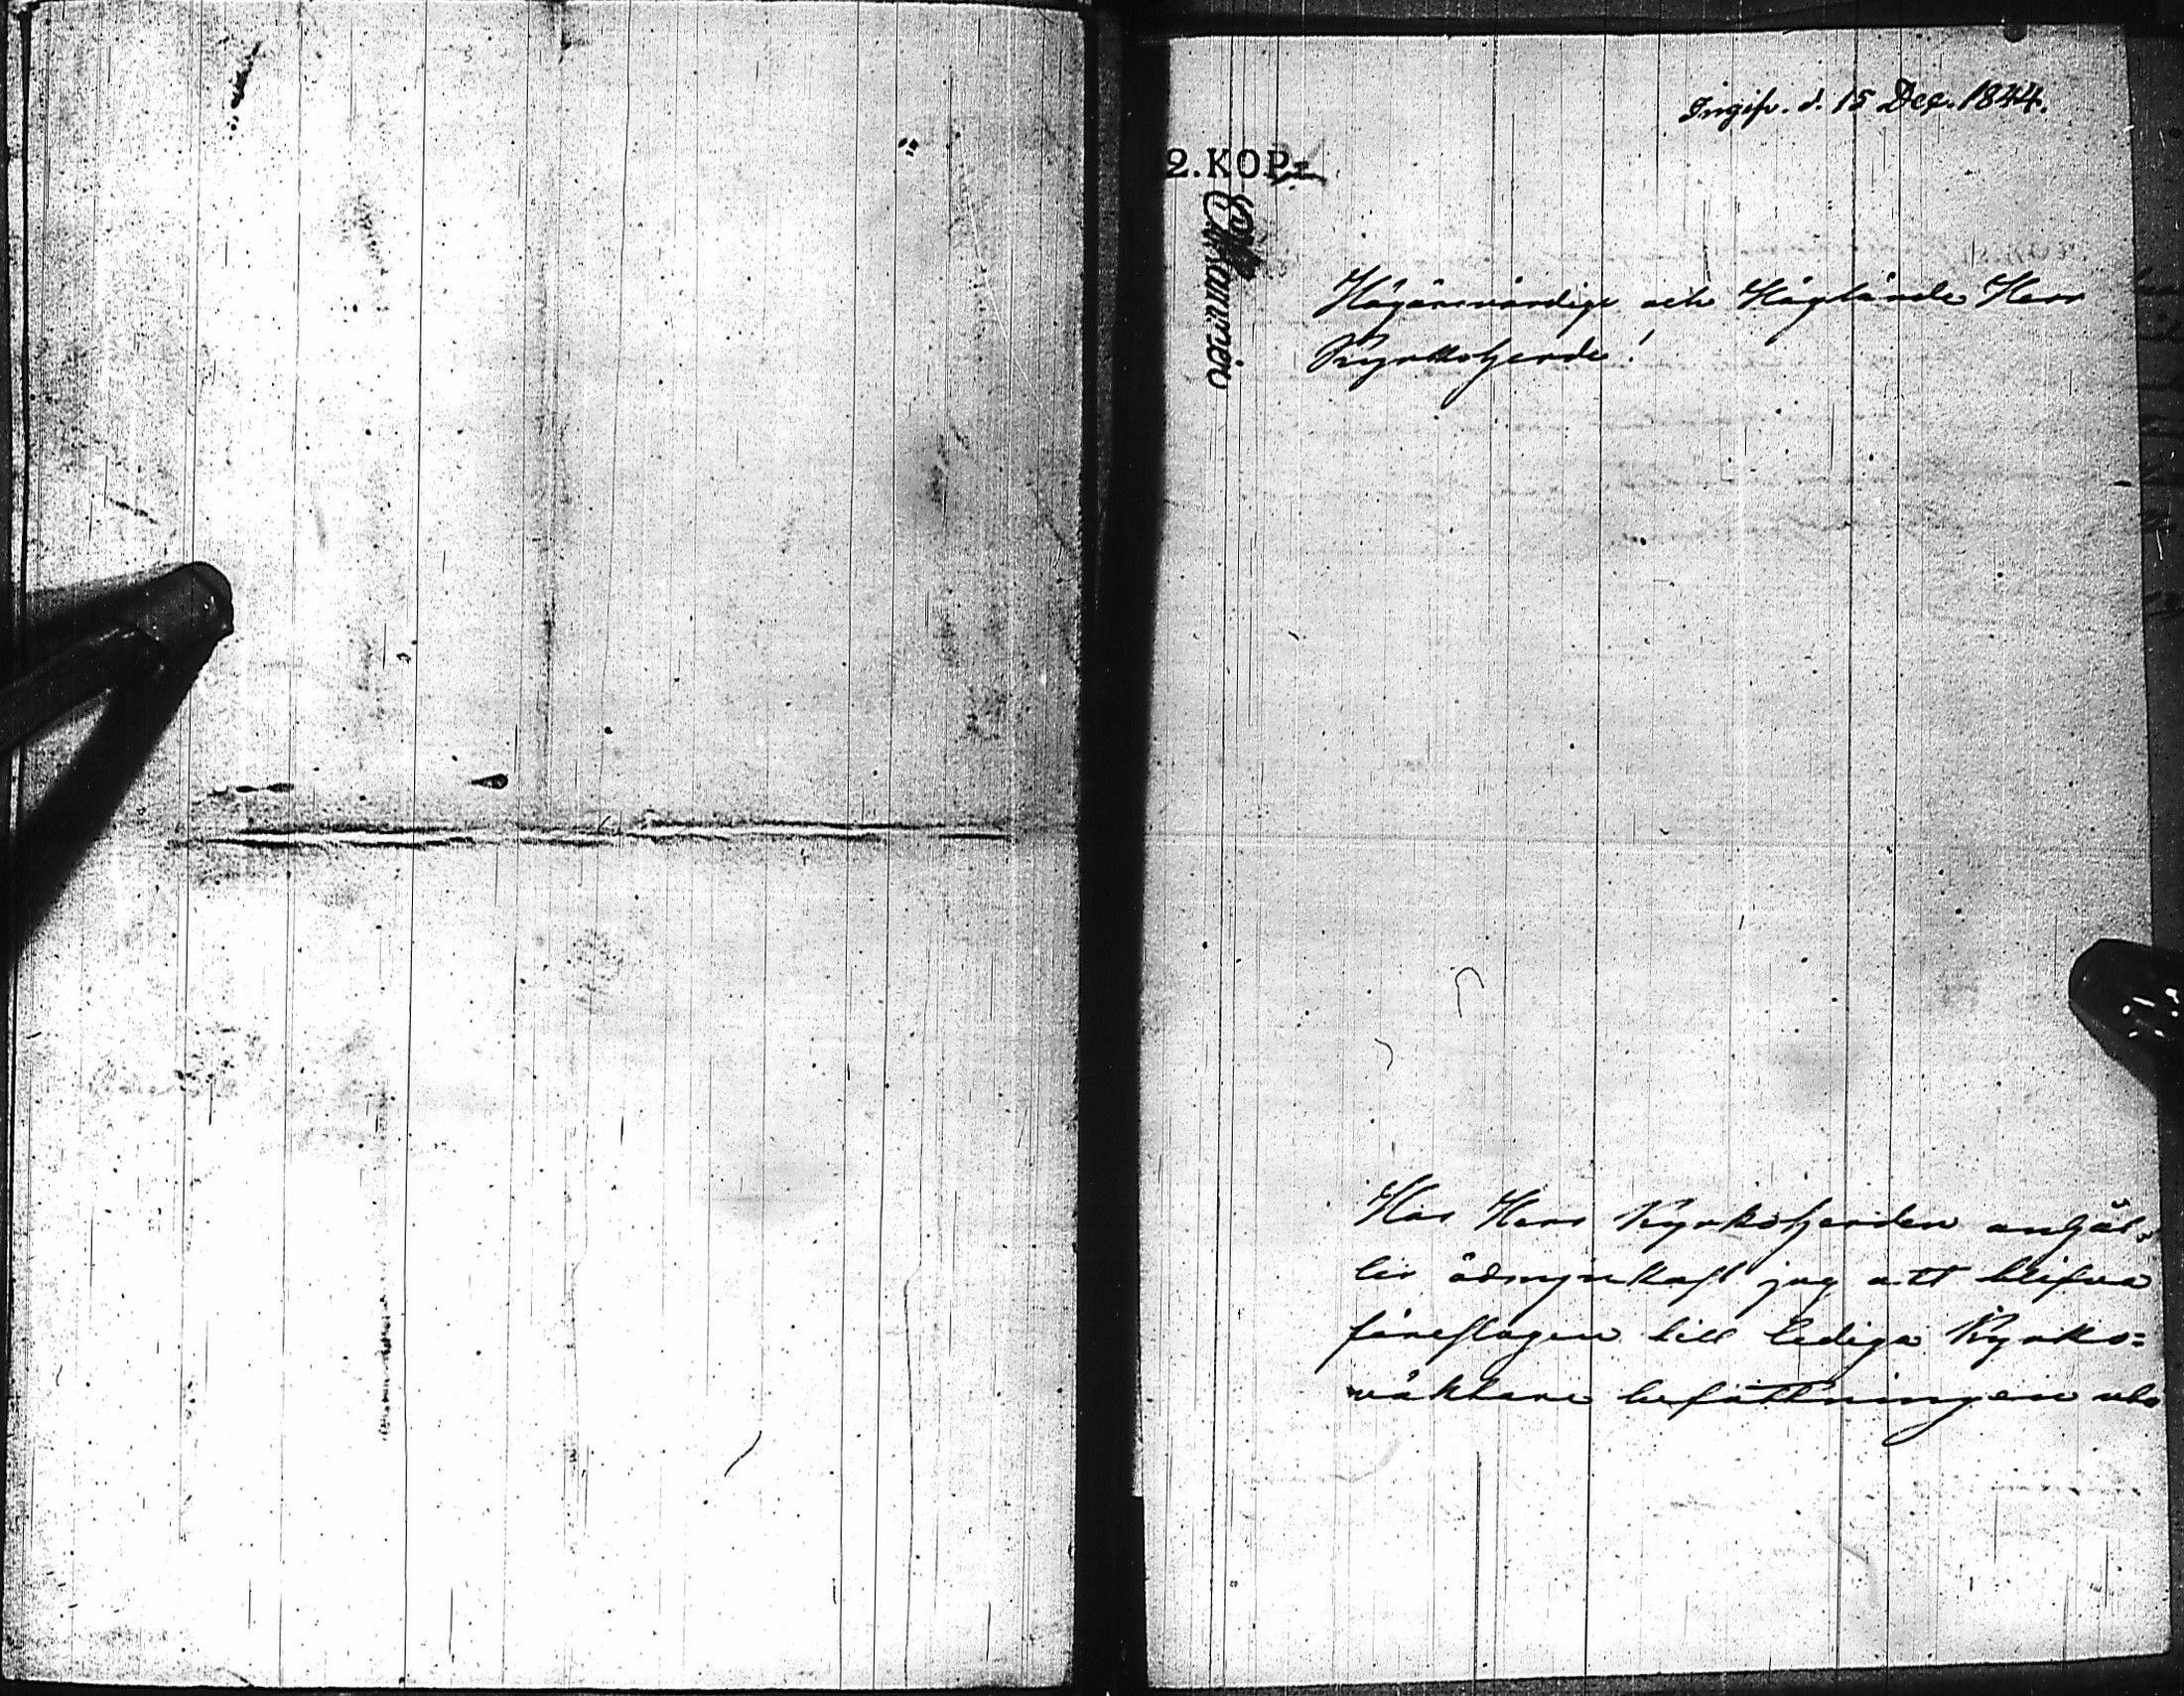 Ingifv. d. 15 Dec. 1844.
2.KOP
Högärevördige och Höglärde Herr
Kyrkoherde!
Hos Herr Kyrkoherden anhål-
ler ödmjukast jag att blifva
föreslagen till lediga Kyrko=
väktare befattningen uti